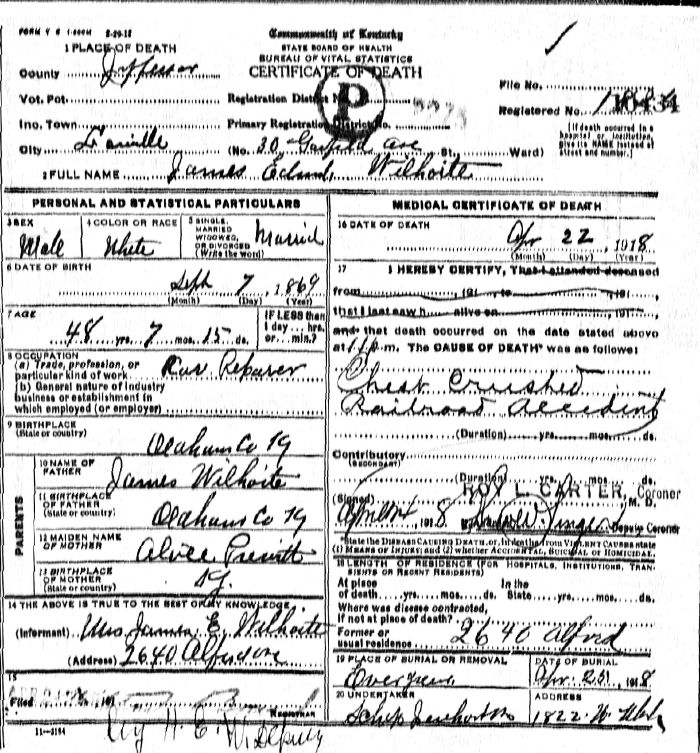 FORM V S 1-500M 5-29-15
Commonwealth of Kentucky
STATE BOARD OF HEALTH
BUREAU OF VITAL STATISTICS
CERTIFICATE OF DEATH
1 PLACE OF DEATH
County Jefferson
Vot. Pct.
Inc. Town
City L'ville
Registration District No.
Primary Registration District No.
(No. 30, Garfield ave St., Ward)
P
File No.
Registered No.
[If death occurred in a hospital or institution, give its NAME instead of street and number.]
2 FULL NAME James Edmd. Wilhoite
PERSONAL AND STATISTICAL PARTICULARS
3 SEX
Male
4 COLOR OR RACE
White
5 SINGLE, MARRIED WIDOWED, OR DIVORCED (Write the word)
Married
6 DATE OF BIRTH
Sept 7, 1869
(Month) (Day) (Year)
7 AGE
48 yrs. 7 mos. 15 ds.
IF LESS than 1 day ... hrs. or ... min.?
8 OCCUPATION
(a) Trade, profession, or particular kind of work Car Repairer
(b) General nature of industry business or establishment in which employed (or employer)
9 BIRTHPLACE
(State or country)
Oldham Co Ky
PARENTS
10 NAME OF FATHER
James Wilhoite
11 BIRTHPLACE OF FATHER
(State or country)
Oldham Co Ky
12 MAIDEN NAME OF MOTHER
Alice Prewitt
13 BIRTHPLACE OF MOTHER
(State or country)
Ky
14 THE ABOVE IS TRUE TO THE BEST OF MY KNOWLEDGE
(Informant) Mrs James E. Wilhoite
(Address) 2640 Alford ave
15
Filed 191
REGISTRAR
H. E. W. Deputy
11-3194
MEDICAL CERTIFICATE OF DEATH
16 DATE OF DEATH
Apr 22, 1918
(Month) (Day) (Year)
17 I HEREBY CERTIFY, That I attended deceased
from 191 , to 191 ,
that I last saw h alive on 191 ,
and that death occurred on the date stated above
at 11 p.m. The CAUSE OF DEATH* was as follows:
Chest Crushed
Railroad Accident
(Duration) yrs. mos. ds.
Contributory
(SECONDARY)
(Duration) yrs. mos. ds.
(Signed) ROY L. CARTER, Coroner
M. D.
1918 Deputy Coroner
*State the DISEASE CAUSING DEATH, or, in deaths from VIOLENT CAUSES state
(1) MEANS OF INJURY; and (2) whether ACCIDENTAL, SUICIDAL or HOMICIDAL.
18 LENGTH OF RESIDENCE (FOR HOSPITALS, INSTITUTIONS, TRANSIENTS OR RECENT RESIDENTS)
At place of death yrs. mos. ds. In the State yrs. mos. ds.
Where was disease contracted,
if not at place of death?
Former or usual residence 2640 Alford
19 PLACE OF BURIAL OR REMOVAL
Evergreen
DATE OF BURIAL
Apr. 25, 1918
20 UNDERTAKER
ADDRESS
1822 W.